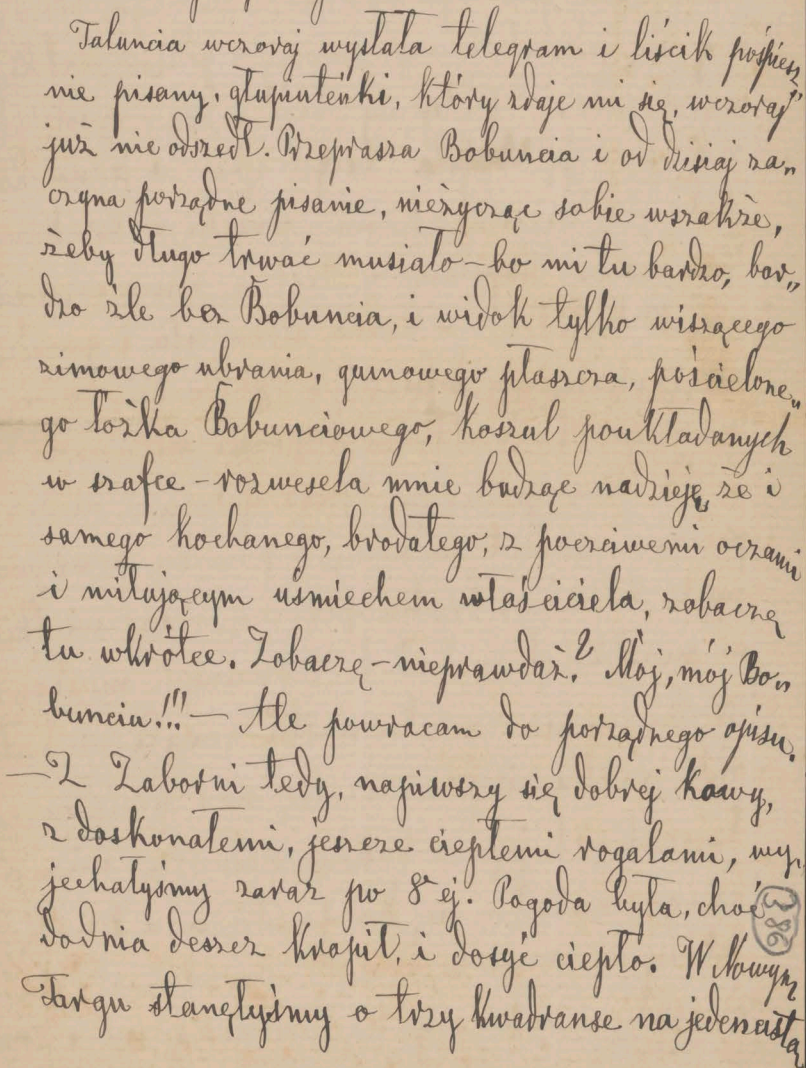 Taluncia wczoraj wysłała telegram i liścik pośpiesz„
nie pisany, głupiuteńki, który zdaje mi się, wczoraj
już nie odszedł. Przeprasza Bobuncia i od dzisiaj za„
czyna porządne pisanie, nieżycząc sobie wszakże,
żeby długo trwać musiało – bo mi tu bardzo, bar„
dzo źle bez Bobuncia, i widok tylko wiszącego
zimowego ubrania, gumowego płaszcza, pościelone„
go łóżka Bobunciowego, koszul poukładanych
w szafce – rozwesela mnie budząc nadzieję, że i
samego kochanego, brodatego, z poczciwemi oczami
i miłującym uśmiechem właściciela, zobaczę
tu wkrótce. Zobaczę – nieprawdaż? Mój, mój Bo„
bunciu!!! – Ale powracam do porządnego opisu.
– Z Zaborni tedy, napiwszy się dobrej kawy,
z doskonałemi, jeszcze ciepłemi rogalami, wy„
jechałyśmy zaraz po 8ej. Pogoda była, choć
dodnia deszcz kropił, i dosyć ciepło. W Nowym
Targu stanęłyśmy o trzy kwadranse na jedenastą
386